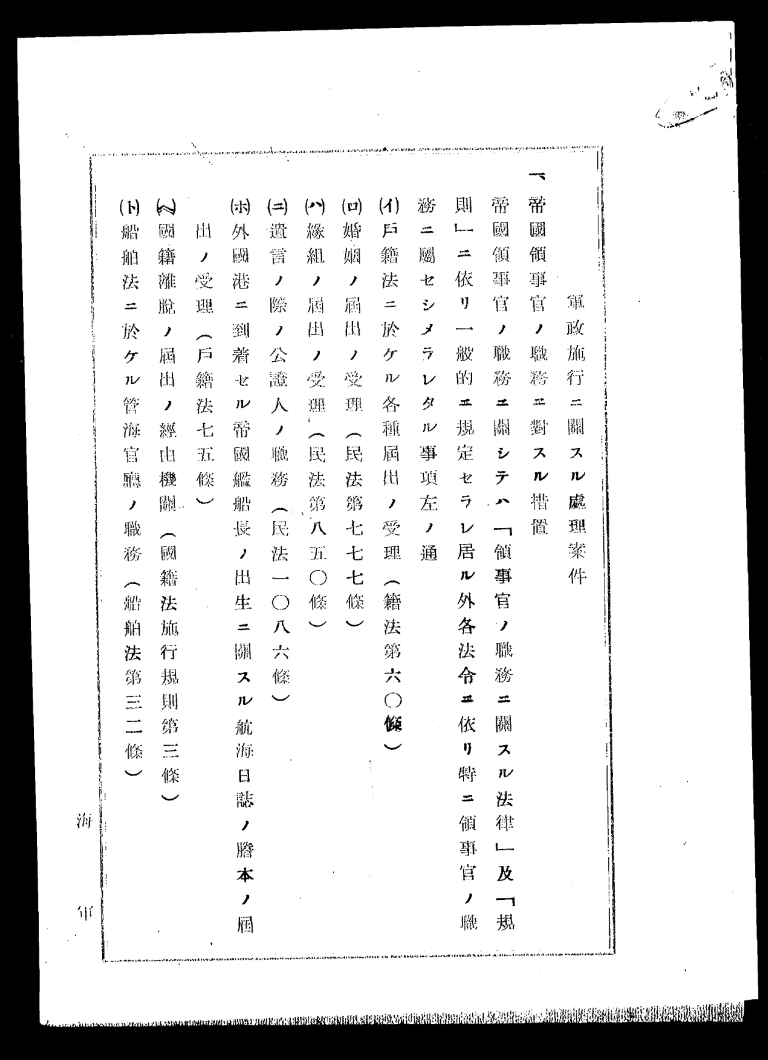 軍政施行ニ關スル處理案件
一、帝國領事官ノ職務ニ對スル措置
帝國領事官ノ職務ニ關シテハ「領事官ノ職務ニ關スル法律」及「規
則」ニ依リ一般的ニ規定セラレ居ル外各法令ニ依リ特ニ領事官ノ職
務ニ屬セシメラレタル事項左ノ通
(イ)戶籍法ニ於ケル各種屆出ノ受理(籍法第六〇條)
(ロ)婚姻ノ屆出ノ受理(民法第七七七條)
(ハ)緣組ノ屆出ノ受理(民法第八五〇條)
(ニ)遺言ノ際ノ公證人ノ職務(民法一〇八六條)
(ホ)外國港ニ到着セル帝國艦船長ノ出生ニ關スル航海日誌ノ謄本ノ屆
出ノ受理(戶籍法七五條)
(ヘ)國籍離脫ノ屆出ノ經由機關(國籍法施行規則第三條)
(ト)船舶法ニ於ケル管海官廳ノ職務(船舶法第三二條)
海軍